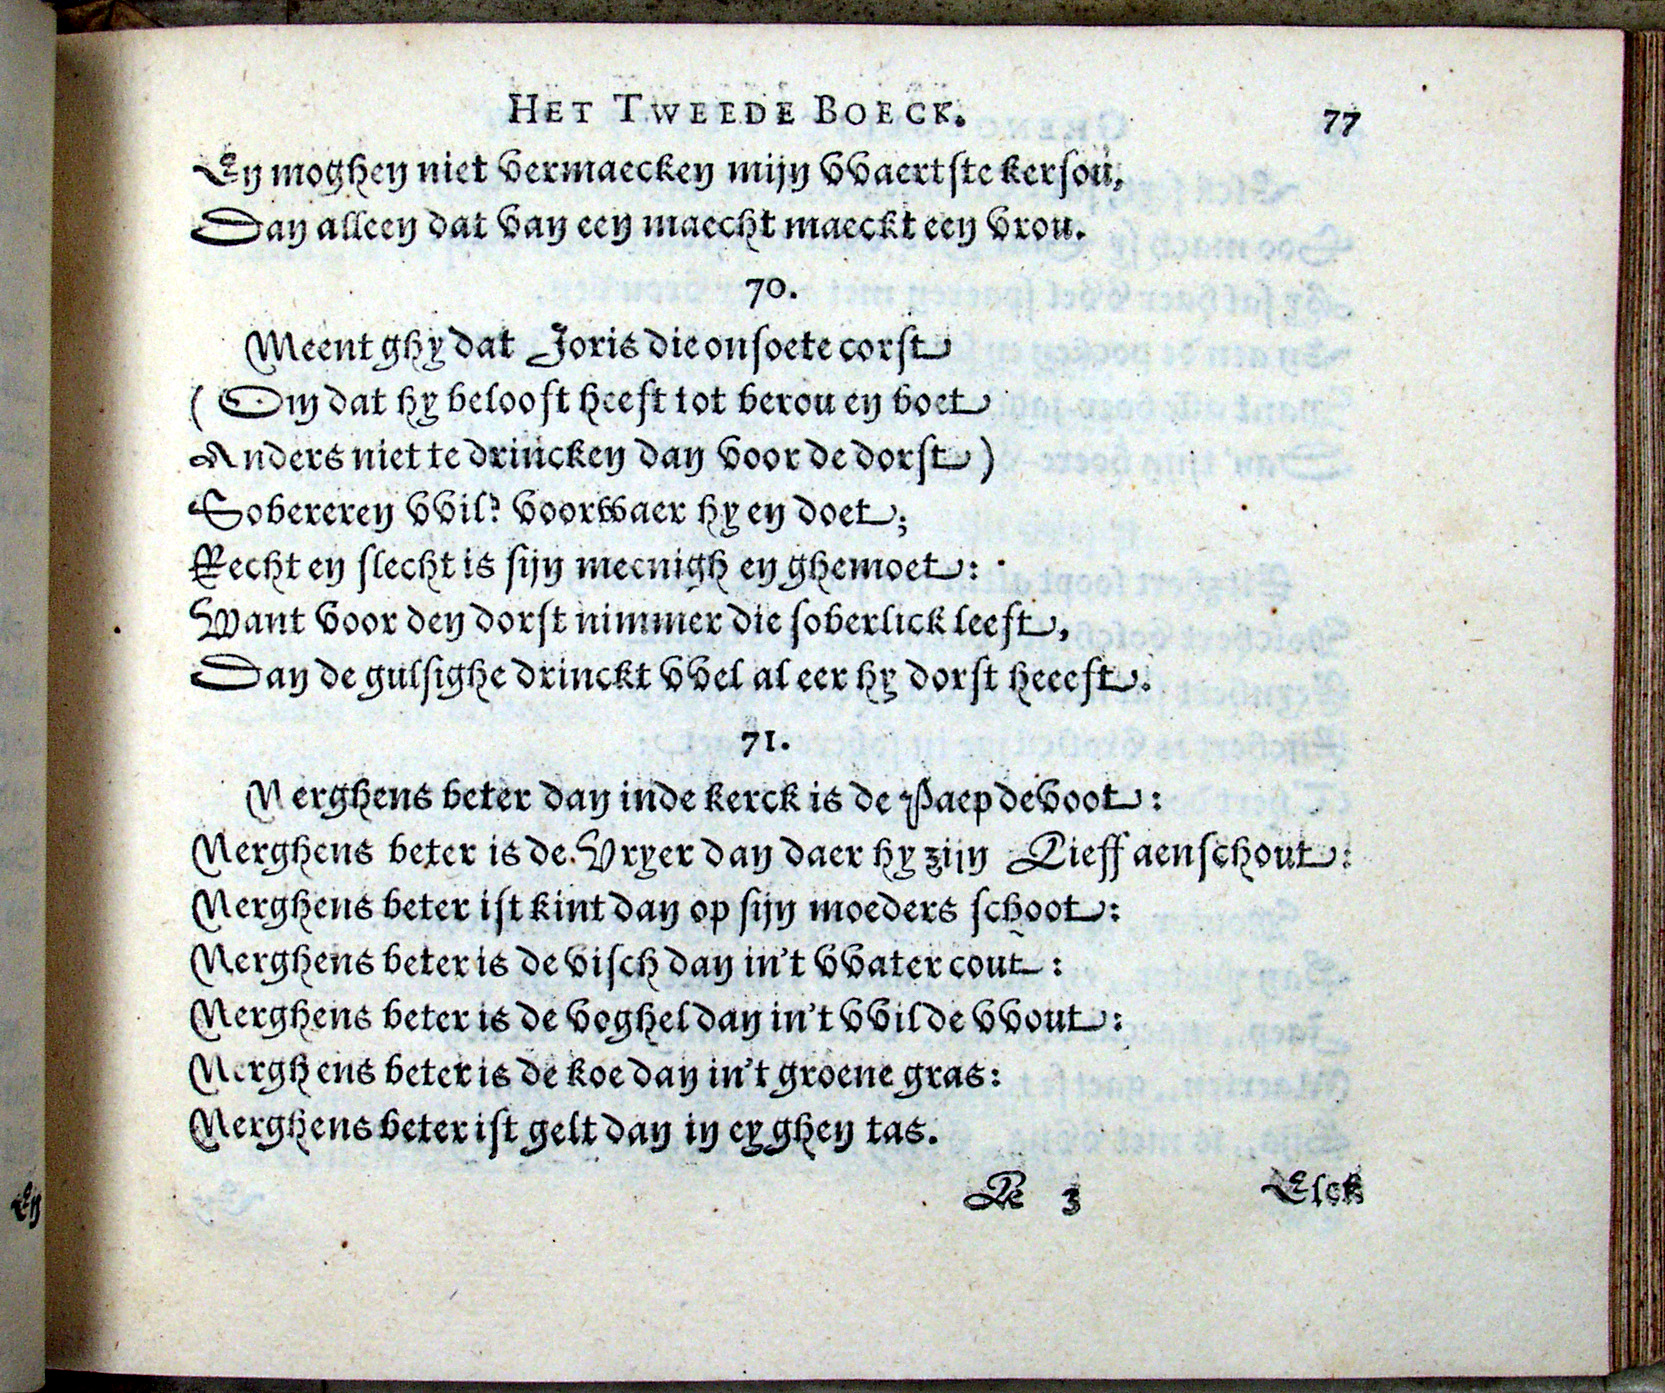 HET TWEEDE BOECK. 77
En moghen niet vermaecken mijn vvaertste kersou,
Dan alleen dat van een maecht maeckt een vrou.
70.
Meent ghy dat Joris die onsoete corst
( Om dat hy belooft heeft tot berou en boet
Anders niet te drincken dan voor de dorst )
Sobereren vvil? voorwaer hy en doet;
Recht en slecht is sijn meenigh en ghemoet:
Want voor den dorst nimmer die soberlick leeft,
Dan de gulsighe drinckt vvel al eer hy dorst heeeft.
71.
Nerghens beter dan inde kerck is de Paep devoot:
Nerghens beter is de Vryer dan daer hy zijn Lieff aenschout:
Nerghens beter ist kint dan op sijn moeders schoot:
Nerghens beter is de visch dan in't vvater cout:
Nerghens beter is de voghel dan in't vvilde vvout:
Nerghens beter is de koe dan in't groene gras:
Nerghens beter ist gelt dan in eyghen tas.
3 Elck
En